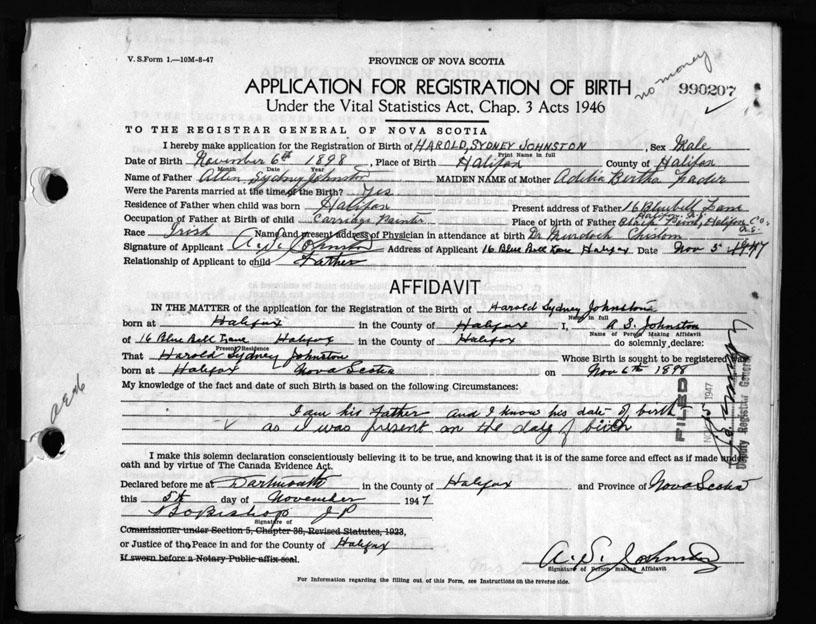 V. S. Form 1.—10M-8-47
PROVINCE OF NOVA SCOTIA
no money
990207
APPLICATION FOR REGISTRATION OF BIRTH
Under the Vital Statistics Act, Chap. 3 Acts 1946
TO THE REGISTRAR GENERAL OF NOVA SCOTIA
I hereby make application for the Registration of Birth of HAROLD, SYDNEY JOHNSTON, Sex Male
Print Name in full
Date of Birth November 6th 1898, Place of Birth Halifax County of Halifax
Month Date Year
Name of Father Sydney Johnston MAIDEN NAME of Mother Bertha Fader
Were the Parents married at the time of the Birth? Yes
Residence of Father when child was born Halifax Present address of Father 16 Bluebell Lane
Halifax N.S.
Occupation of Father at Birth of child Carriage Painter Place of Father Point, Halifax Co,
N.S.
Race Irish Name and present address of Physician in attendance at birth Dr Murdoch Chisholm
Signature of Applicant A. S. Johnston Address of Applicant 16 Blue Bell Lane Halifax Date Nov 5 1947
Relationship of Applicant to child Father
AFFIDAVIT
IN THE MATTER of the application for the Registration of the Birth of Harold Sydney Johnstone
Name in full
born at Halifax in the County of Halifax I, A S. Johnston
Name of Person Making Affidavit
of 16 Blue Bell Lane Halifax in the County of Halifax do solemnly, declare:
Present Residence
That Harold Sydney Johnston Whose Birth is sought to be registered was
born at Halifax Nova Scotia on Nov 6th 1898
My knowledge of the fact and date of such Birth is based on the following Circumstances:
I am his Father and I know his date of birth
as I was present on the day of birth
FILED
NOV 15 1947
Deputy Registrar General
I make this solemn declaration conscientiously believing it to be true, and knowing that it is of the same force and effect as if made under
oath and by virtue of The Canada Evidence Act.
Declared before me at Dartmouth in the County of Halifax and Province of Nova Scotia
this 5th day of November 1947
Bishop JP
Signature of
Commissioner under Section 5, Chapter 38, Revised Statutes, 1923,
or Justice of the Peace in and for the County of Halifax
If sworn before a Notary Public affix seal.
A. S. Johnston
Signature of Person making Affidavit
For Information regarding the filling out of this Form, see Instructions on the reverse side.